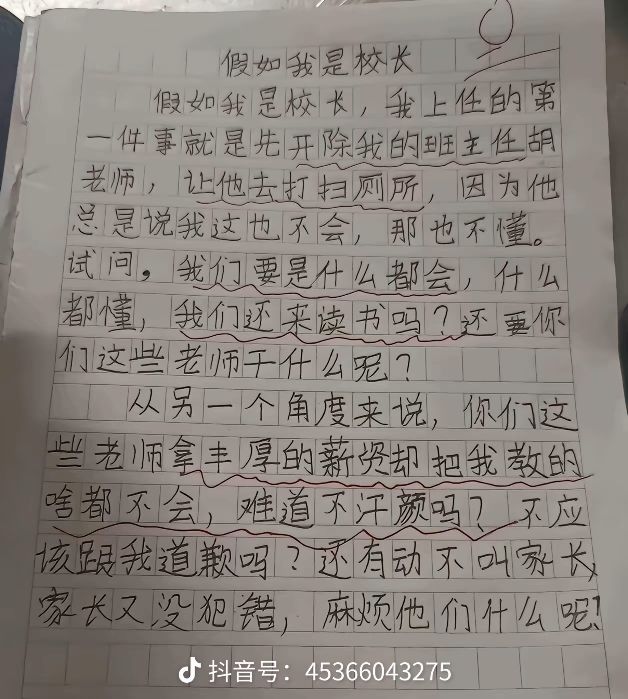 假如我是校长
假如我是校长，我上任的第
一件事就是先开除我的班主任胡
老师，让他去打扫厕所，因为他
总是说我这也不会，那也不懂。
试问。我们要是什么都会，什么
都懂，我们还来读书吗？还要你
们这些老师干什么呢？
从另一个角度来说，你们这
些老师拿丰厚的薪资却把我教的
啥都不会，难道不汗颜吗？不应
该跟我道歉吗？还有动不叫家长，
家长又没犯错，麻烦他们什么呢？
抖音号：45366043275